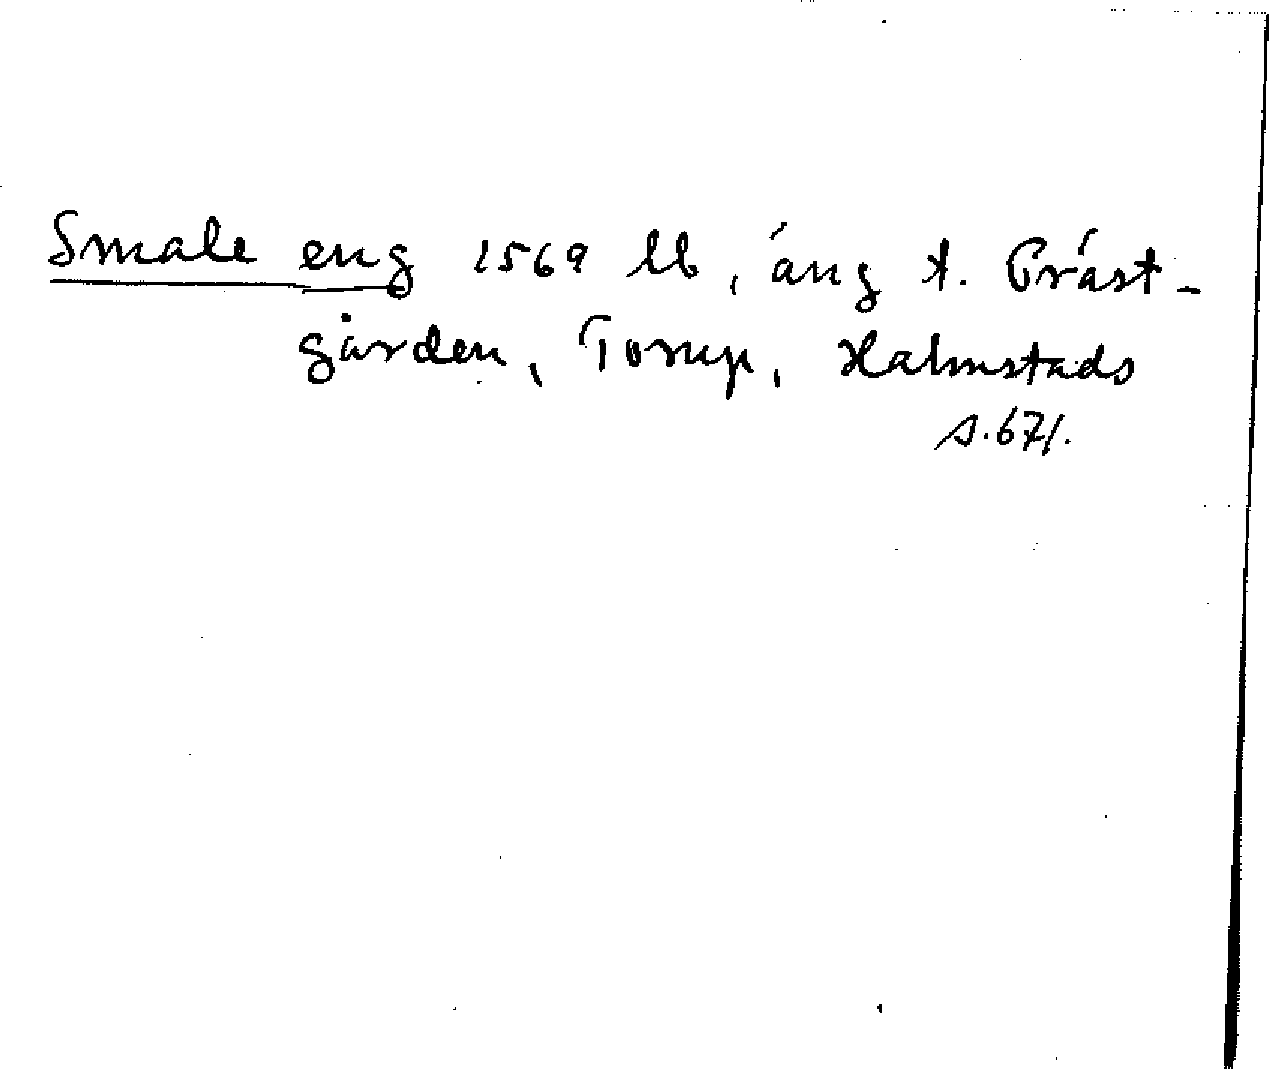 Smale eng 1569 lb, äng t. Präst-
gården, Torup, Halmstads
s. 671.